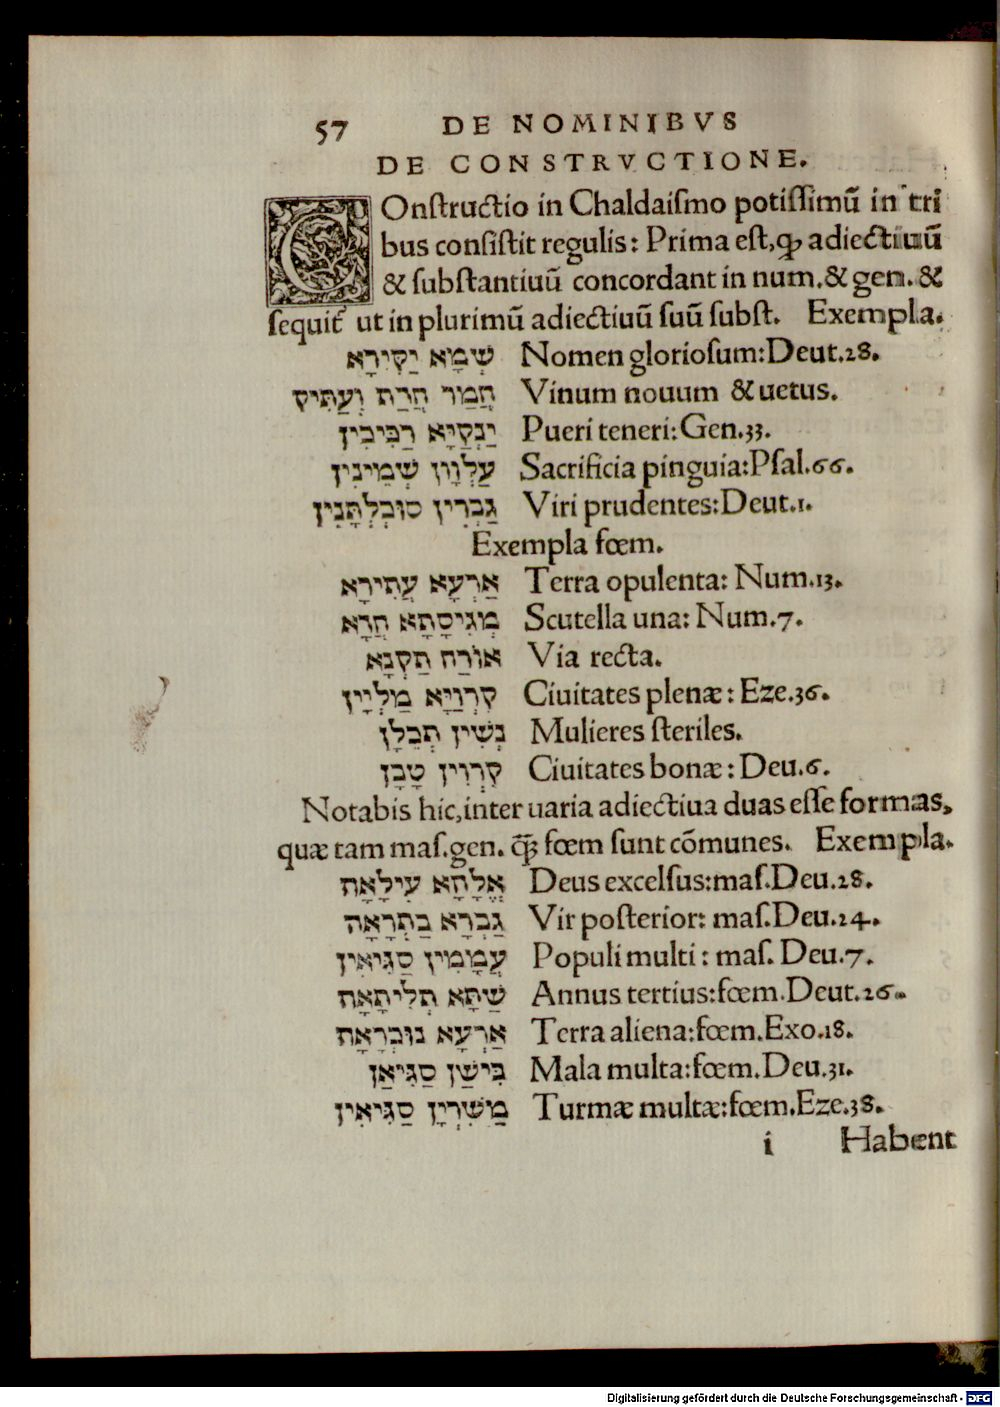 57 DE NOMINIBVS
DE CONSTRVCTIONE.
COnſtructio in Chaldaiſmo potiſſimũ in tri
bus conſiſtit regulis: Prima eſt, ꝙ adiectiuũ
& ſubſtantiuũ concordant in num. & gen. &
ſequit᷑ ut in plurimũ adiectiuũ ſuũ ſubſt. Exempla.
שְׁמָא יַקִּירָא Nomen glorioſum: Deut.28.
חֲמַר חֲדַת וְעַתִּיק Vinum nouum & uetus.
יַנְקַיָּא רַכִּיכִין Pueri teneri: Gen.33.
עַלְוָון שְׁמִינִין Sacrificia pinguia: Pſal.66.
גַּבְרִין סוּכְלְתָנִין Viri prudentes: Deut.1.
Exempla fœm.
אַרְעָא עֲתִירָא Terra opulenta: Num.13.
מְגִיסְתָא חֲדָא Scutella una: Num.7.
אוֹרַח תַּקְנָא Via recta.
קִרְוַיָּא מַלְיָין Ciuitates plenæ: Eze.36.
נְשִׁין תְּכֵלָן Mulieres ſteriles.
קִרְוִין טָבָן Ciuitates bonæ: Deu.6.
Notabis hic, inter uaria adiectiua duas eſſe formas,
quæ tam maſ. gen. ꝙ̃ fœm ſunt cõmunes. Exempla.
אֱלָהָא עִילָאָה Deus excelſus: maſ. Deu.28.
גַּבְרָא בַתְרָאָה Vir poſterior: maſ. Deu.24.
עֲמָמִין סַגִּיאִין Populi multi: maſ. Deu.7.
שַׁתָּא תְלִיתָאָה Annus tertius: fœm. Deut.26.
אַרְעָא נוּכְרָאָה Terra aliena: fœm. Exo.18.
בִּישַׁן סַגִּיאַן Mala multa: fœm. Deu.31.
מַשִּׁרְיָן סַגִּיאִין Turmæ multæ: fœm. Eze.38.
i Habent
Digitalisierung gefördert durch die Deutsche Forschungsgemeinschaft - DFG